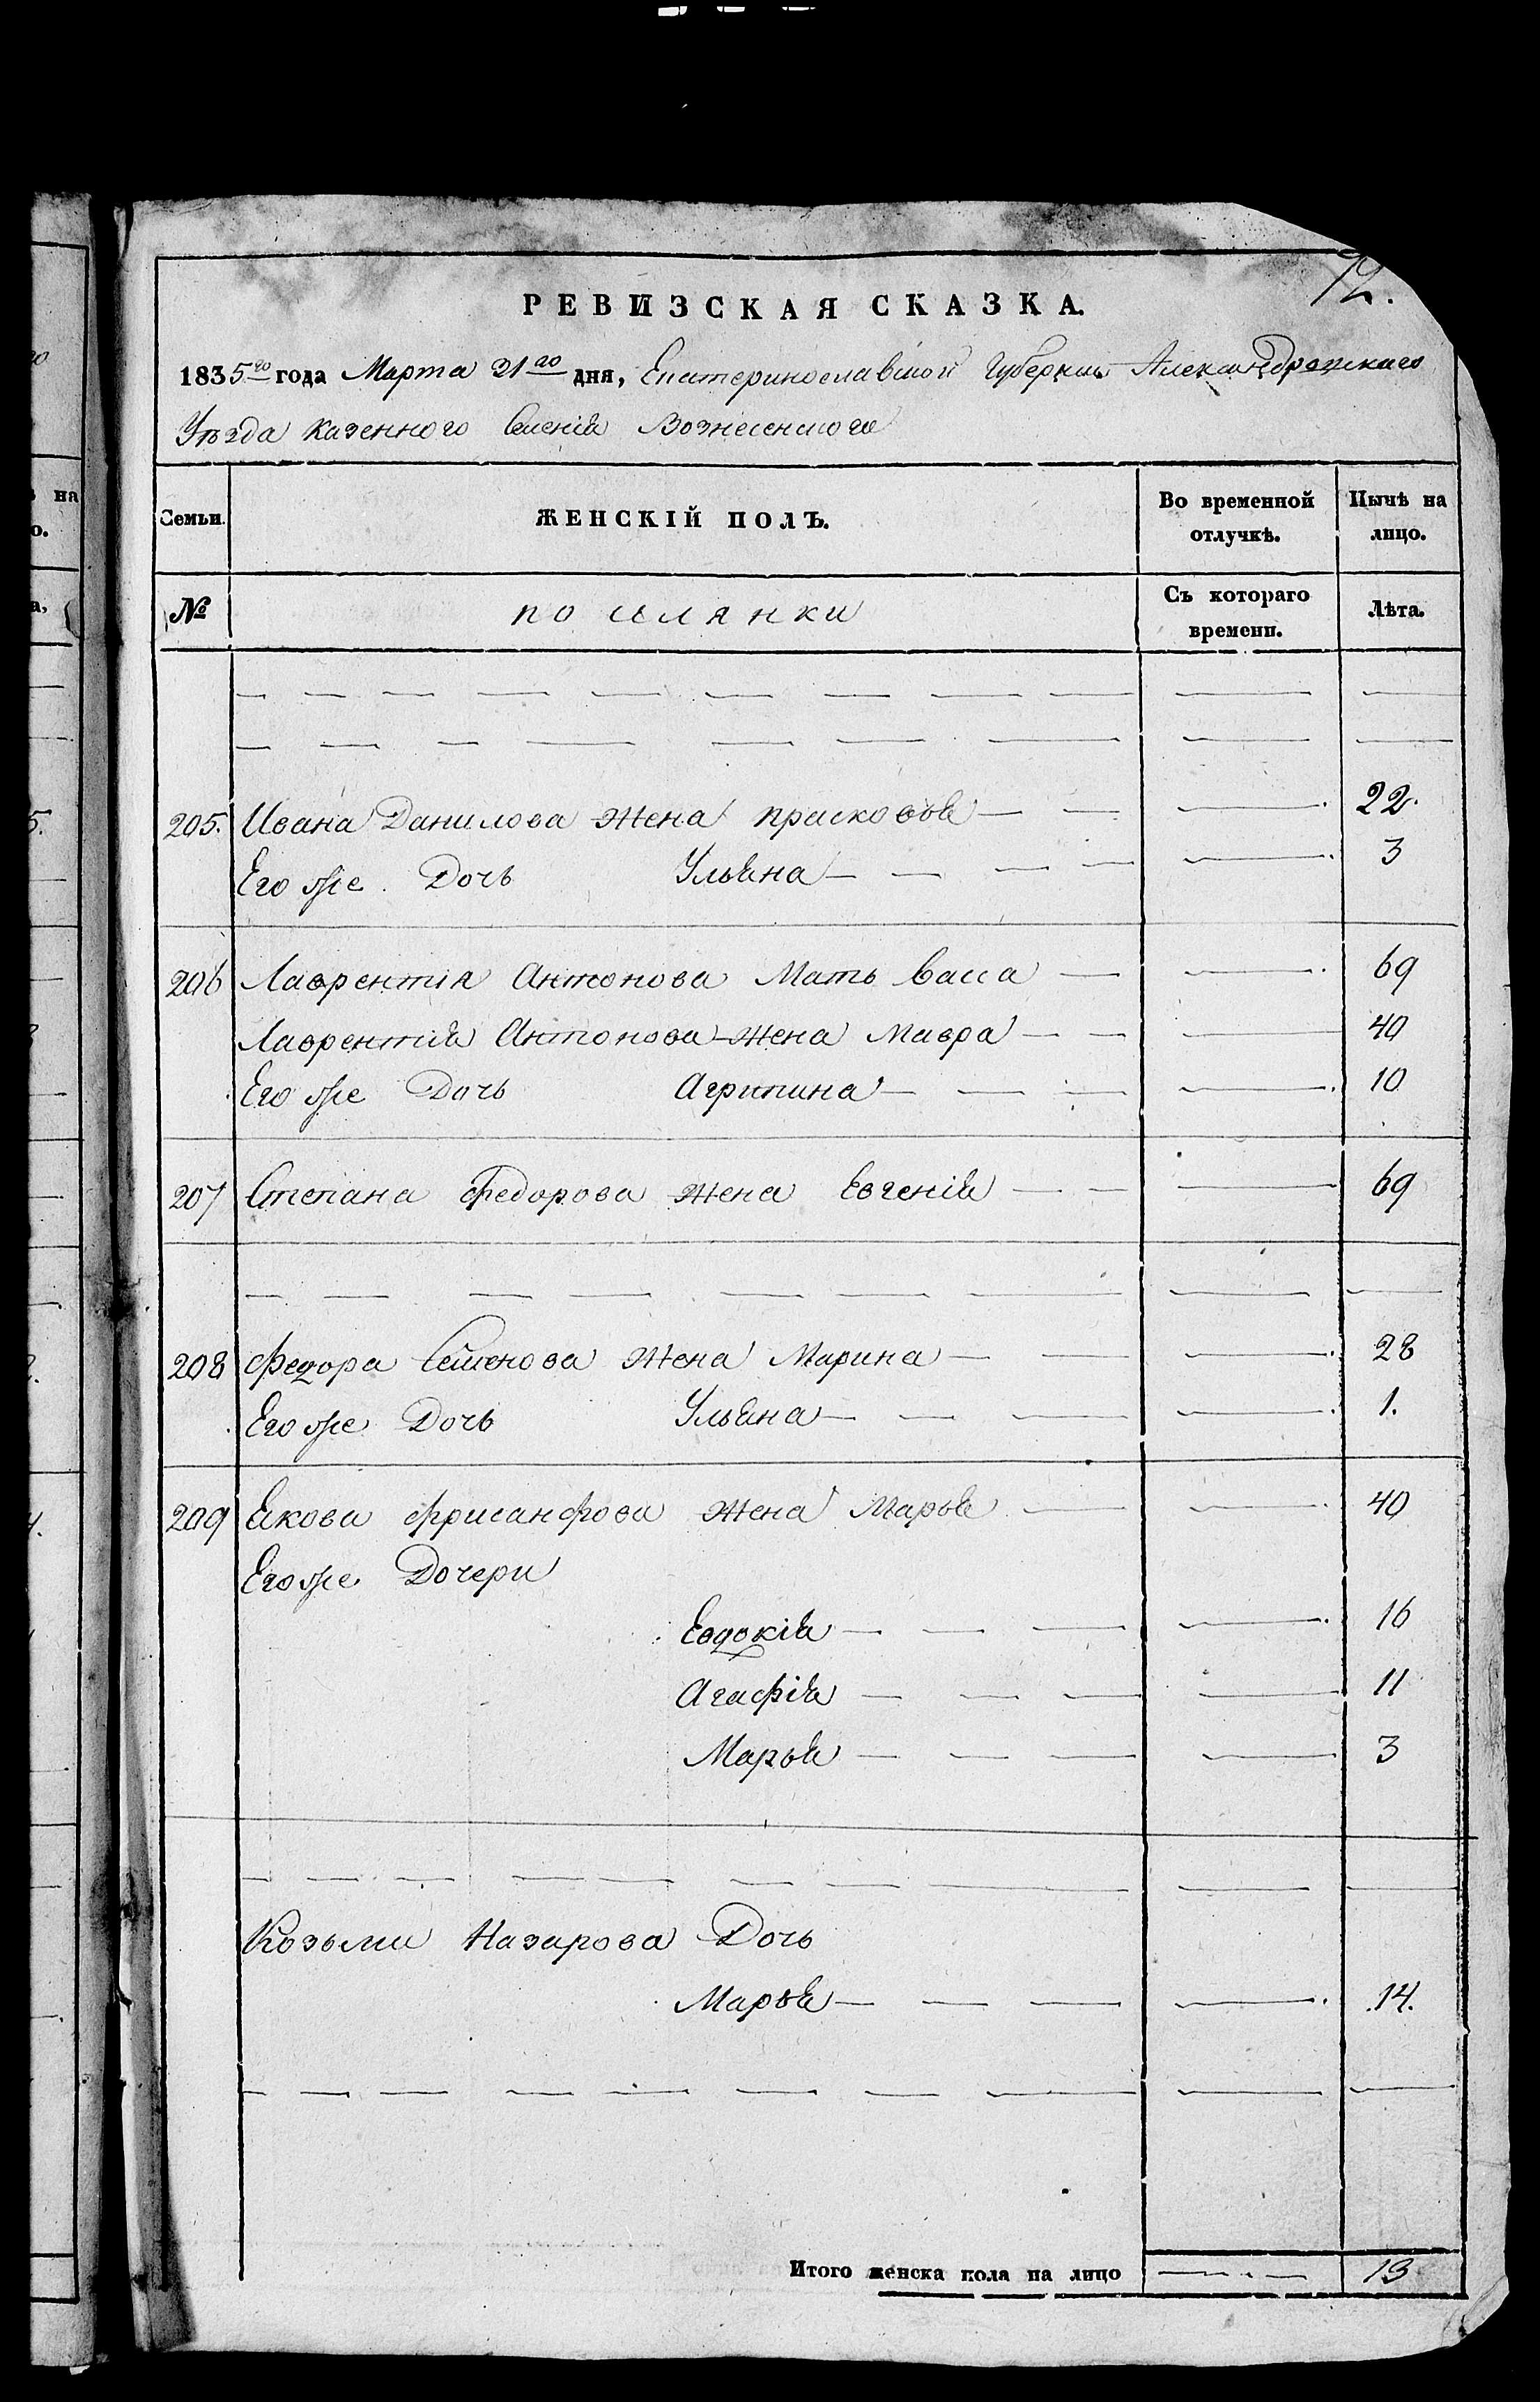 92.
РЕВИЗСКАЯ СКАЗКА.
1835го года Марта 21го дня, Екатеринославской Губернии Александровскаго
Уезда казенного Селенія Вознесенского
Семьи. ЖЕНСКІЙ ПОЛЪ. Во временной отлучкѣ. Нынѣ на лицо.
№ поселянки Съ котораго времени. Лѣта.
205. Ивана Данилова Жена Прасковья 22.
Его же Дочь Ульяна 3
206 Лаврентія Антонова Мать Васса 69
Лаврентія Антонова Жена Мавра 40
Его же Дочь Агрипина 10
207 Степана Федорова Жена Евгенія 69
208 Федора Семенова Жена Марина 28
Его же Дочь Ульяна 1.
209 Якова Фрисанфова Жена Марья 40
Его же Дочери
Евдокія 16
Агафія 11
Марья 3
Козьми Назарова Дочь
Марья 14.
Итого женска пола на лицо 13